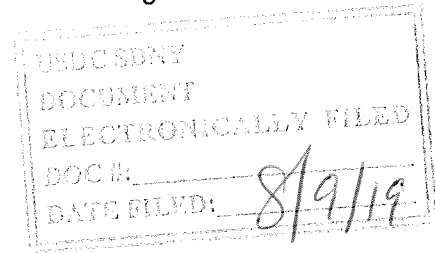 USDC SDNY
DOCUMENT
ELECTRONICALLY FILED
DOC #:
DATE FILED: 8/9/19